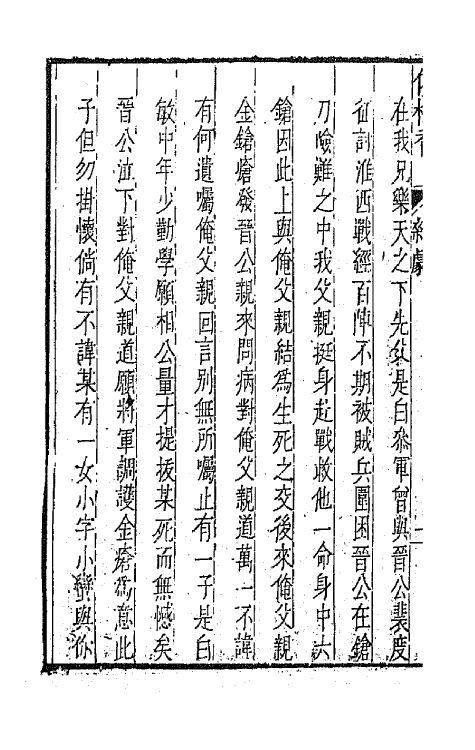 在我兄樂天之下先父是白叅軍曾與晉公裴度
征討淮西戰經百陣不期被賊兵圍困晉公在鎗
刀險難之中我父親挺身赴戰救他一命身中六
鎗因此上與俺父親結爲生死之交後來俺父親
金鎗瘡發晉公親來問病對俺父親道萬一不諱
有何遺囑俺父親回言別無所囑止有一子是白
敏中年少勤學願相公量才提拔某死而無憾矣
晉公泣下對俺父親道願將軍調護金瘡爲意此
子但勿掛懷倘有不諱某有一女小字小蠻與你